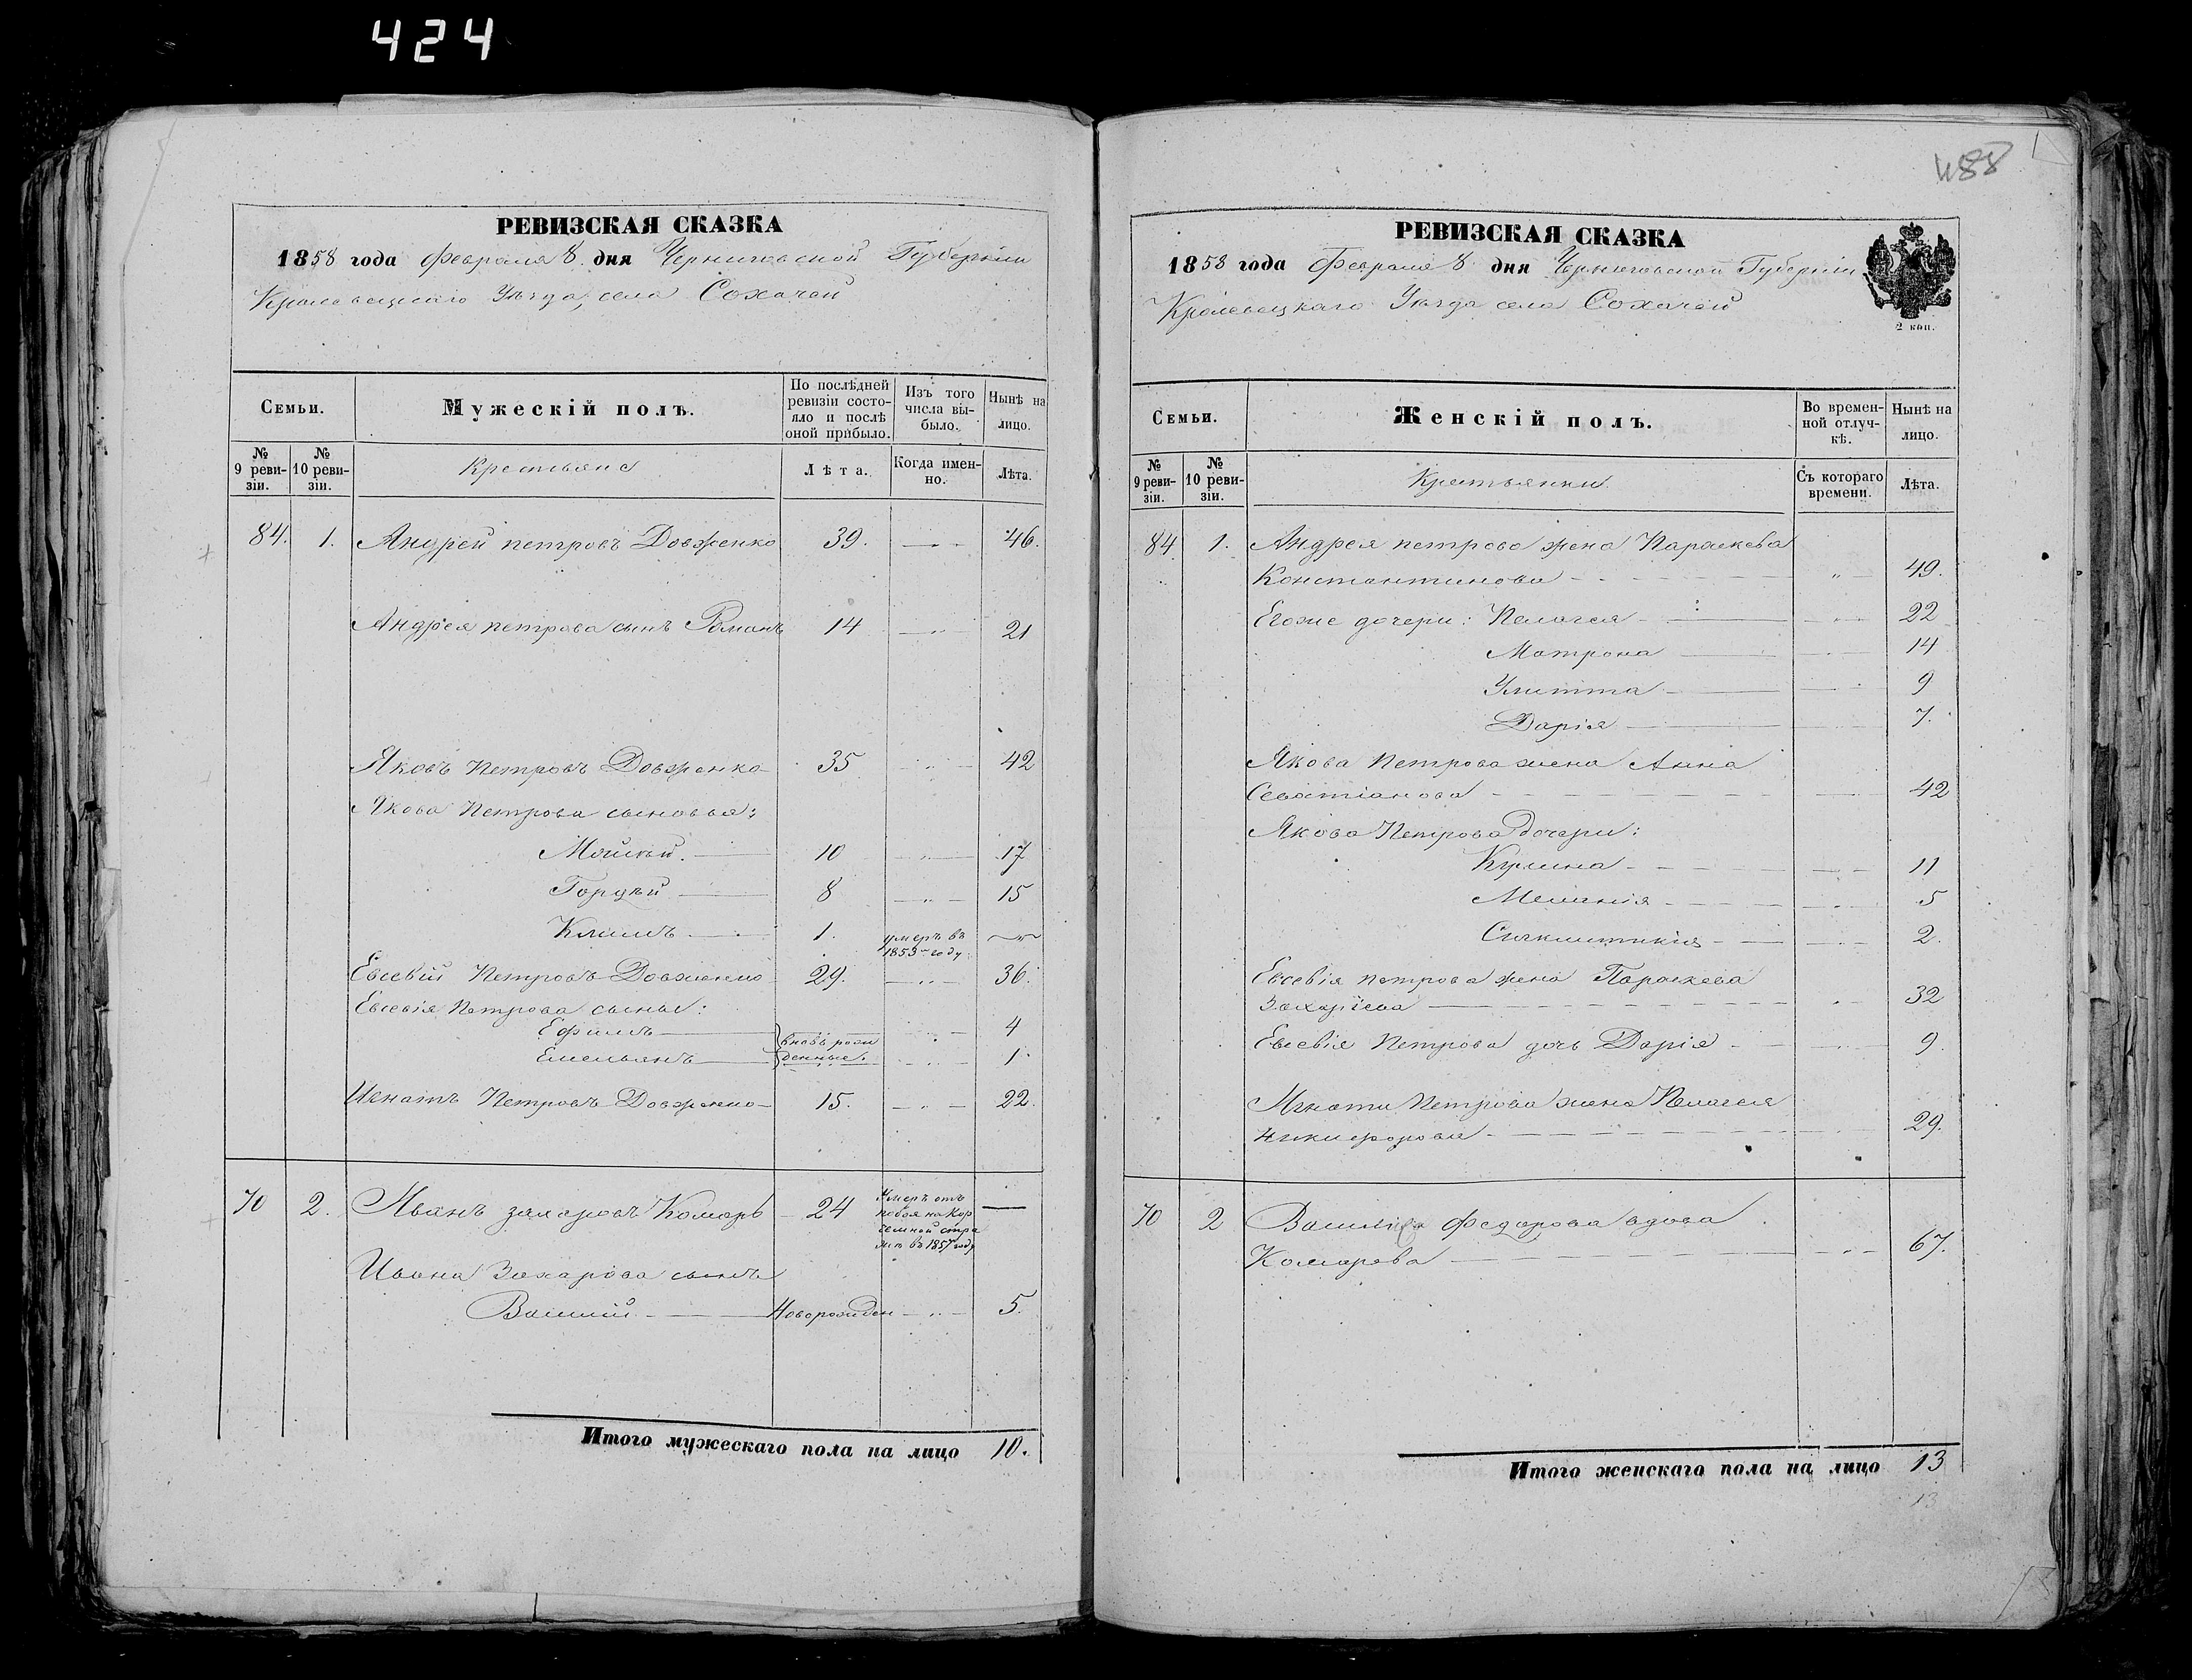 424
РЕВИЗСКАЯ СКАЗКА
1858 года Февраля 8 дня Черниговской Губерніи
Кролевецкаго Уѣзда, села Сохачей
Семьи.
Мужескій полъ.
По послѣдней ревизіи состояло и послѣ оной прибыло.
Изъ того числа выбыло.
Нынѣ на лицо.
№ 9 ревизіи.
№ 10 ревизіи.
Крестьяне
Лѣта.
Когда именно.
Лѣта.
84. 1. Андрей петровъ Довженко 39. 46.
Андрея петрова сынъ Романъ 14 21
Яковъ Петровъ Довженко 35 42
Якова Петрова сыновья:
Мойсей. 10 17
Гордѣй 8 15
Климъ 1. умеръ въ 1853 году
Евсевій Петровъ Довженко 29. 36.
Евсевія Петрова сыны:
Ефимъ 4
Емельянъ вновь рожденные. 1
Игнатъ Петровъ Довженко 15. 22.
70 2. Иванъ захаровъ Комаръ 24 Умеръ отъ побоя на Корчемной стра въ 1857 году
Ивана Захарова сынъ
Василій Новорожден 5.
Итого мужескаго пола на лицо 10.
488
РЕВИЗСКАЯ СКАЗКА
1858 года Февраля 8 дня Черниговской Губерніи
Кролевецкаго Уѣзда села Сохачей
2 коп.
Семьи.
Женскій полъ.
Во временной отлучкѣ.
Нынѣ на лицо.
№ 9 ревизіи.
№ 10 ревизіи.
Крестьянки
Съ котораго времени.
Лѣта.
84 1. Андрея петрова жена Параскева
Константинова 49.
Егоже дочери: Пелагея 22
Матрона 14
Улитта 9
Дарія 7.
Якова Петрова жена Анна
Севатіанова 42
Якова Петрова дочери:
Кулина 11
Меланія 5
2.
Евсевія петрова жена Параскева
Захаріева 32
Евсевія Петрова дочь Дарія 9.
Игната Петрова жена Пелагея
Никифорова 29.
70 2 Василиса Федорова вдова
Комарова 67.
Итого женскаго пола на лицо 13
13